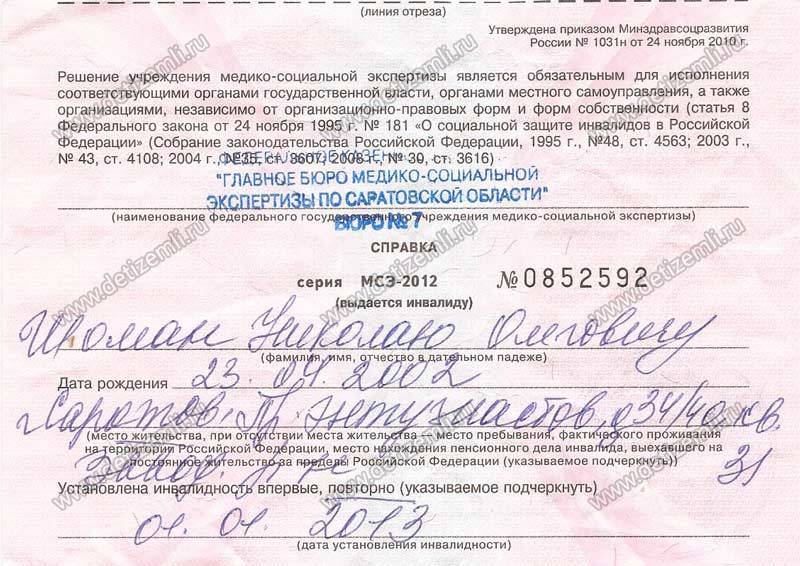 (линия отреза)
Утверждена приказом Минздравсоцразвития
России № 1031н от 24 ноября 2010 г.
Решение учреждения медико-социальной экспертизы является обязательным для исполнения
соответствующими органами государственной власти, органами местного самоуправления, а также
организациями, независимо от организационно-правовых форм и форм собственности (статья 8
Федерального закона от 24 ноября 1995 г. № 181 «О социальной защите инвалидов в Российской
Федерации» (Собрание законодательства Российской Федерации, 1995 г., №48, ст. 4563; 2003 г.,
№ 43, ст. 4108; 2004 г., №35, ст. 3607; 2008 г., № 30, ст. 3616)
"ГЛАВНОЕ БЮРО МЕДИКО-СОЦИАЛЬНОЙ
ЭКСПЕРТИЗЫ ПО САРАТОВСКОЙ ОБЛАСТИ"
(наименование федерального государственного учреждения медико-социальной экспертизы)
БЮРО № 7
СПРАВКА
серия МСЭ-2012 № 0852592
(выдается инвалиду)
Шоман Николаю Олеговичу
(фамилия, имя, отчество в дательном падеже)
Дата рождения 23.04.2002
г. Саратов, Пр. Энтузиастов, д 34/40 кв.
(место жительства, при отсутствии места жительства – место пребывания, фактического проживания
на территории Российской Федерации, место нахождения пенсионного дела инвалида, выехавшего на
постоянное жительство за пределы Российской Федерации (указываемое подчеркнуть))
31
Установлена инвалидность впервые, повторно (указываемое подчеркнуть)
01.01.2013
(дата установления инвалидности)
www.detizemli.ru